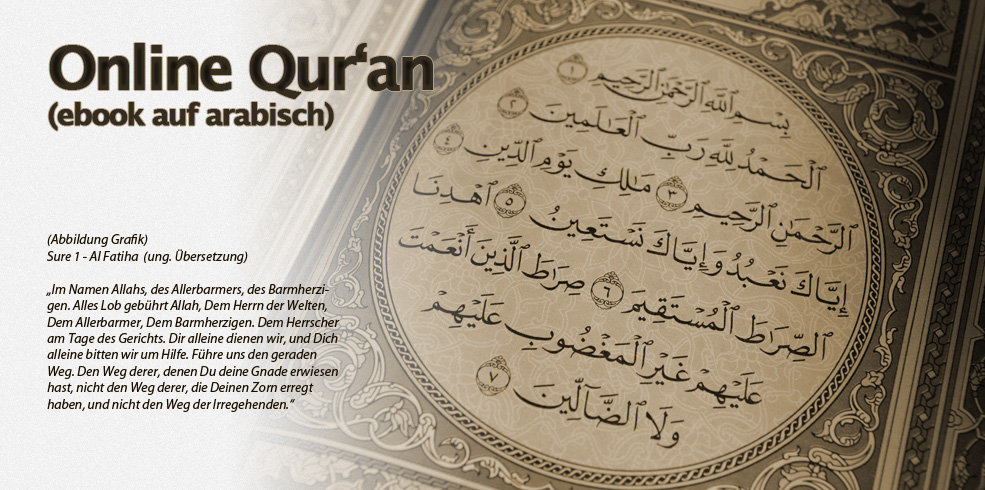 Online Qur‘an
(ebook auf arabisch)
(Abbildung Grafik)
Sure 1 - Al Fatiha (ung. Übersetzung)
„Im Namen Allahs, des Allerbarmers, des Barmherzi-
gen. Alles Lob gebührt Allah, Dem Herrn der Welten,
Dem Allerbarmer, Dem Barmherzigen. Dem Herrscher
am Tage des Gerichts. Dir alleine dienen wir, und Dich
alleine bitten wir um Hilfe. Führe uns den geraden
Weg. Den Weg derer, denen Du deine Gnade erwiesen
hast, nicht den Weg derer, die Deinen Zorn erregt
haben, und nicht den Weg der Irregehenden.“
بِسْمِ ٱللَّهِ ٱلرَّحْمَٰنِ ٱلرَّحِيمِ ١
ٱلْحَمْدُ لِلَّهِ رَبِّ ٱلْعَٰلَمِينَ ٢
ٱلرَّحْمَٰنِ ٱلرَّحِيمِ ٣ مَٰلِكِ يَوْمِ ٱلدِّينِ ٤
إِيَّاكَ نَعْبُدُ وَإِيَّاكَ نَسْتَعِينُ ٥ ٱهْدِنَا
ٱلصِّرَٰطَ ٱلْمُسْتَقِيمَ ٦ صِرَٰطَ ٱلَّذِينَ أَنْعَمْتَ
عَلَيْهِمْ غَيْرِ ٱلْمَغْضُوبِ عَلَيْهِمْ
وَلَا ٱلضَّآلِّينَ ٧